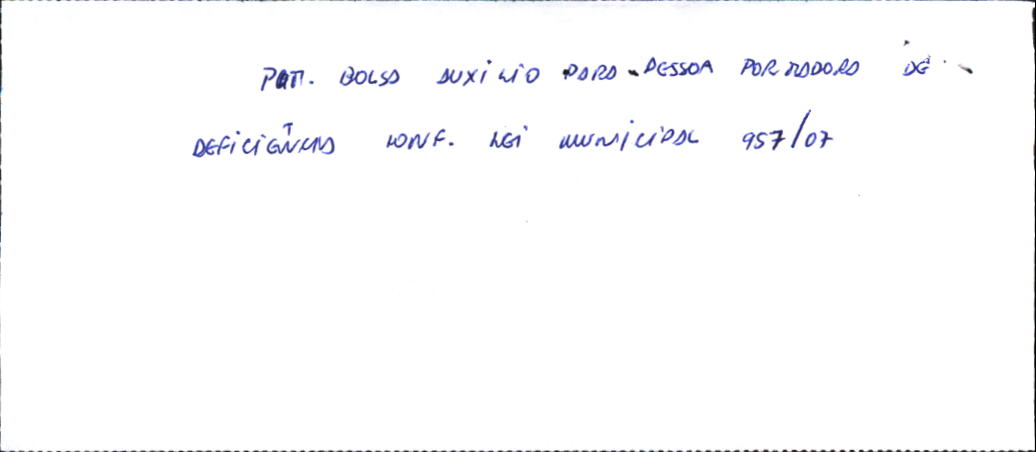 PGTO. BOLSA AUXÍLIO PARA PESSOA PORTADORA DE
DEFICIÊNCIA CONF. LEI MUNICIPAL 957/07